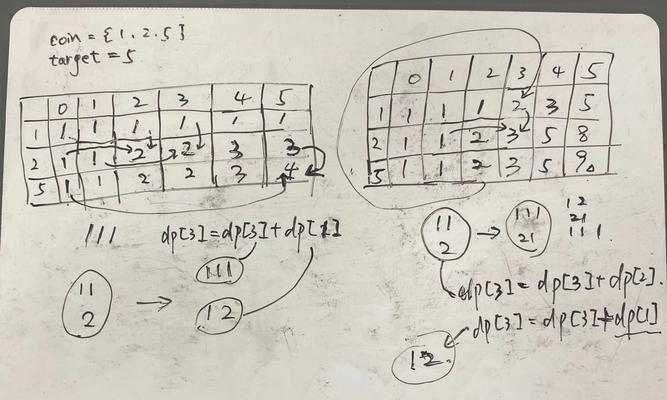 coin = {1, 2, 5}
target = 5
0 1 2 3 4 5
1 1 1 1 1 1 1
2 1 1 2 2 3 3
5 1 1 2 2 3 4
111
dp[3]=dp[3]+dp[1]
111
11
2
12
0 1 2 3 4 5
1 1 1 1 2 3 5
2 1 1 2 3 5 8
5 1 1 2 3 5 9
11
2
111
21
12
21
111
dp[3] = dp[3]+dp[2].
dp[3] = dp[3]+dp[1]
12